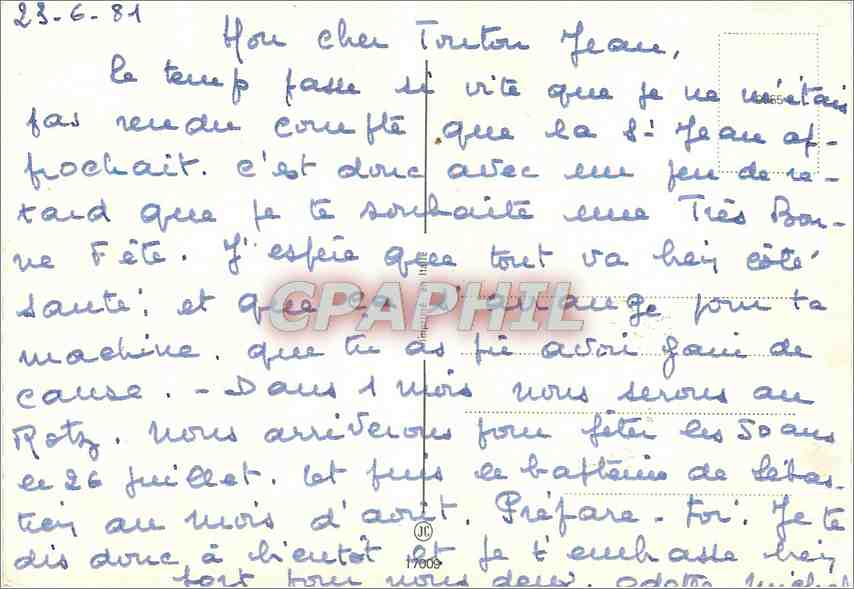 23-6-81
Mon cher Tonton Jean,
Le temp passe si vite que je ne m'étais
pas rendu compte que la St Jean ap-
prochait. C'est donc avec un peu de re-
tard que je te souhaite une Très Bon-
ne Fête. J'espère que tout va bien côté
santé, et que ça s'arrange pour ta
machine. que tu as pu avoir gain de
cause. - Dans 1 mois nous serons au
Retz. nous arriverons pour fêter les 50 ans
le 26 juillet. Et puis le baptême de Sébas-
tien au mois d'août. Prépare-Toi. Je te
dis donc à bientôt et je t'embrasse bien
fort pour nous deux. Odette Michel
Imprimé en Italie
CPAPHIL
JC
17009